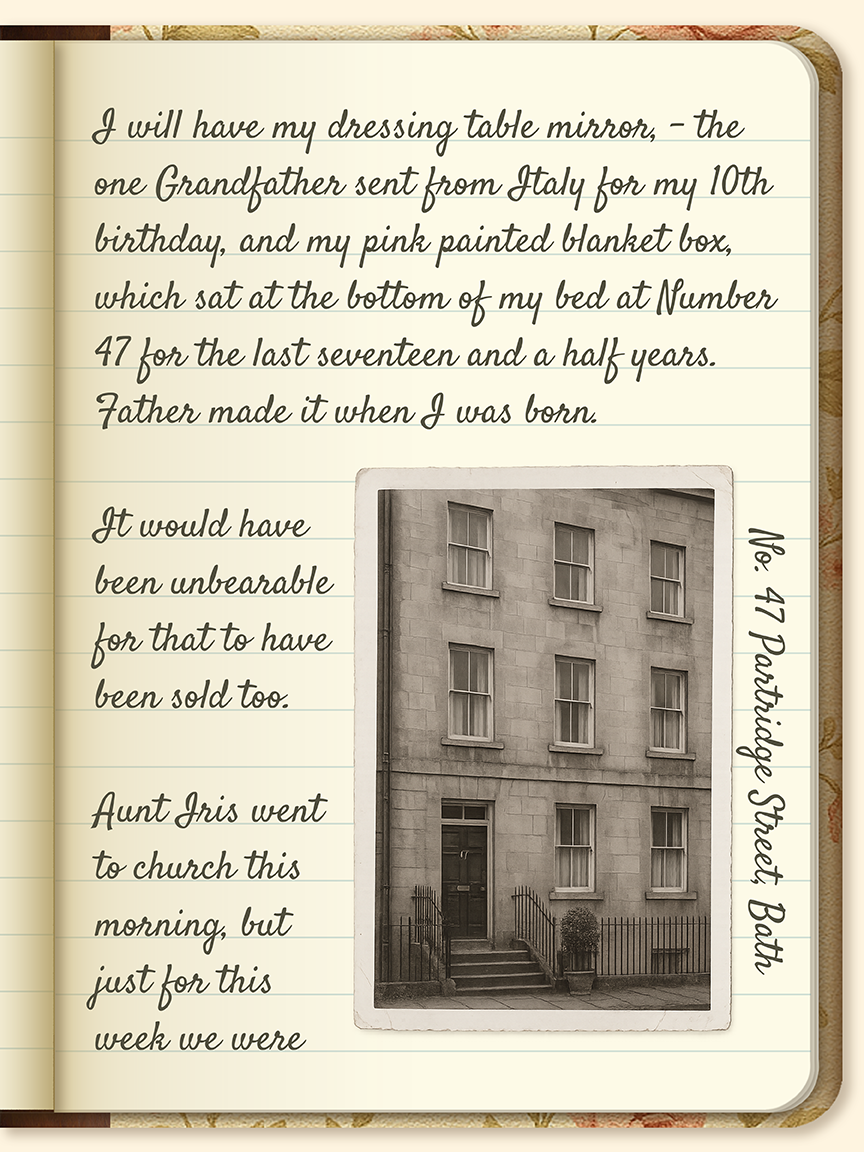 I will have my dressing table mirror, – the
one Grandfather sent from Italy for my 10th
birthday, and my pink painted blanket box,
which sat at the bottom of my bed at Number
47 for the last seventeen and a half years.
Father made it when I was born.
It would have
been unbearable
for that to have
been sold too.
Aunt Iris went
to church this
morning, but
just for this
week we were
No. 47 Partridge Street, Bath